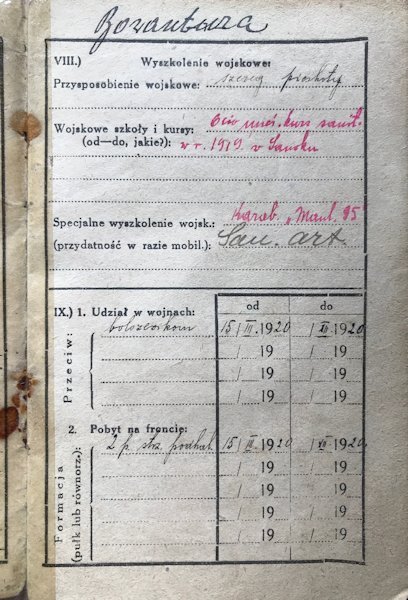 VIII.) Wyszkolenie wojskowe:
Przysposobienie wojskowe: szereg piechoty
Wojskowe szkoły i kursy: 6cio mieś. kurs sanit.
(od—do, jakie?): w r. 1919. w Sanoku
Specjalne wyszkolenie wojsk.: Karab. „Manl. 95"
(przydatność w razie mobil.): San. art.
od do
IX.) 1. Udział w wojnach:
Przeciw:
bolszewikom 15/III.1920 /XII 1920
/ 19 / 19
/ 19 / 19
/ 19 / 19
2. Pobyt na froncie:
Formacja
(pułk lub równorz.):
2 p. strz. podhal. 15/III.1920 /XII 1920
/ 19 / 19
/ 19 / 19
/ 19 / 19
/ 19 / 19